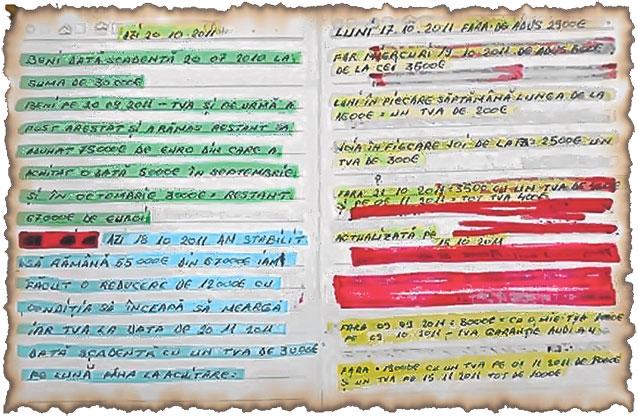 AZI 20.10.2011
BENI DATĂ SCADENTĂ 20 07 2010 LA
SUMA DE 30000€
BENI PE 30 09 2011 - TVA ȘI PE URMĂ A
FOST ARESTAT ȘI A RĂMAS RESTANT SA
ADUNAT 75000€ DE EURO DIN CARE A
ACHITAT O DATĂ 5000€ ÎN SEPTEMBRIE
ȘI ÎN OCTOMBRIE 3000€ - RESTANT
67000€ DE EURO
AZI 18 10 2011 AM STABILIT
SĂ RĂMÂNĂ 55000€ DIN 67000€ IAM
FĂCUT O REDUCERE DE 12000€ CU
CONDIȚIA SĂ ÎNCEAPĂ SĂ MEARGĂ
IAR TVA LA DATA DE 20 11 2011
DATĂ SCADENTĂ CU UN TVA DE 3000€
PE LUNĂ PÂNĂ LA ACHITARE.
LUNI 17.10.2011 FARA DE ADUS 2900€
FAR MIERCURI 19 10 2011 DE ADUS 600€
DE LA CEI 3500€
LUNI ÎN FIECARE SĂPTĂMÂNĂ LUNEA DE LA
1500€ = UN TVA DE 200€
JOIA ÎN FIECARE JOI DE LA 2500€ UN
TVA DE 300€
10 2011 = 3500 CU UN TVA DE
ȘI PE 05 11 2011 = TOT TVA 400€
ACTUALIZATĂ PE
15 10 2011
FARA 09 09 2011 = 8000€ = CU
PE 09.10.2011 - TVA GARANȚIE AUDI A4
FARA CU UN TVA PE 01 11 2011 DE
ȘI UN TVA PE 15 11 2011 TOT DE 1000€